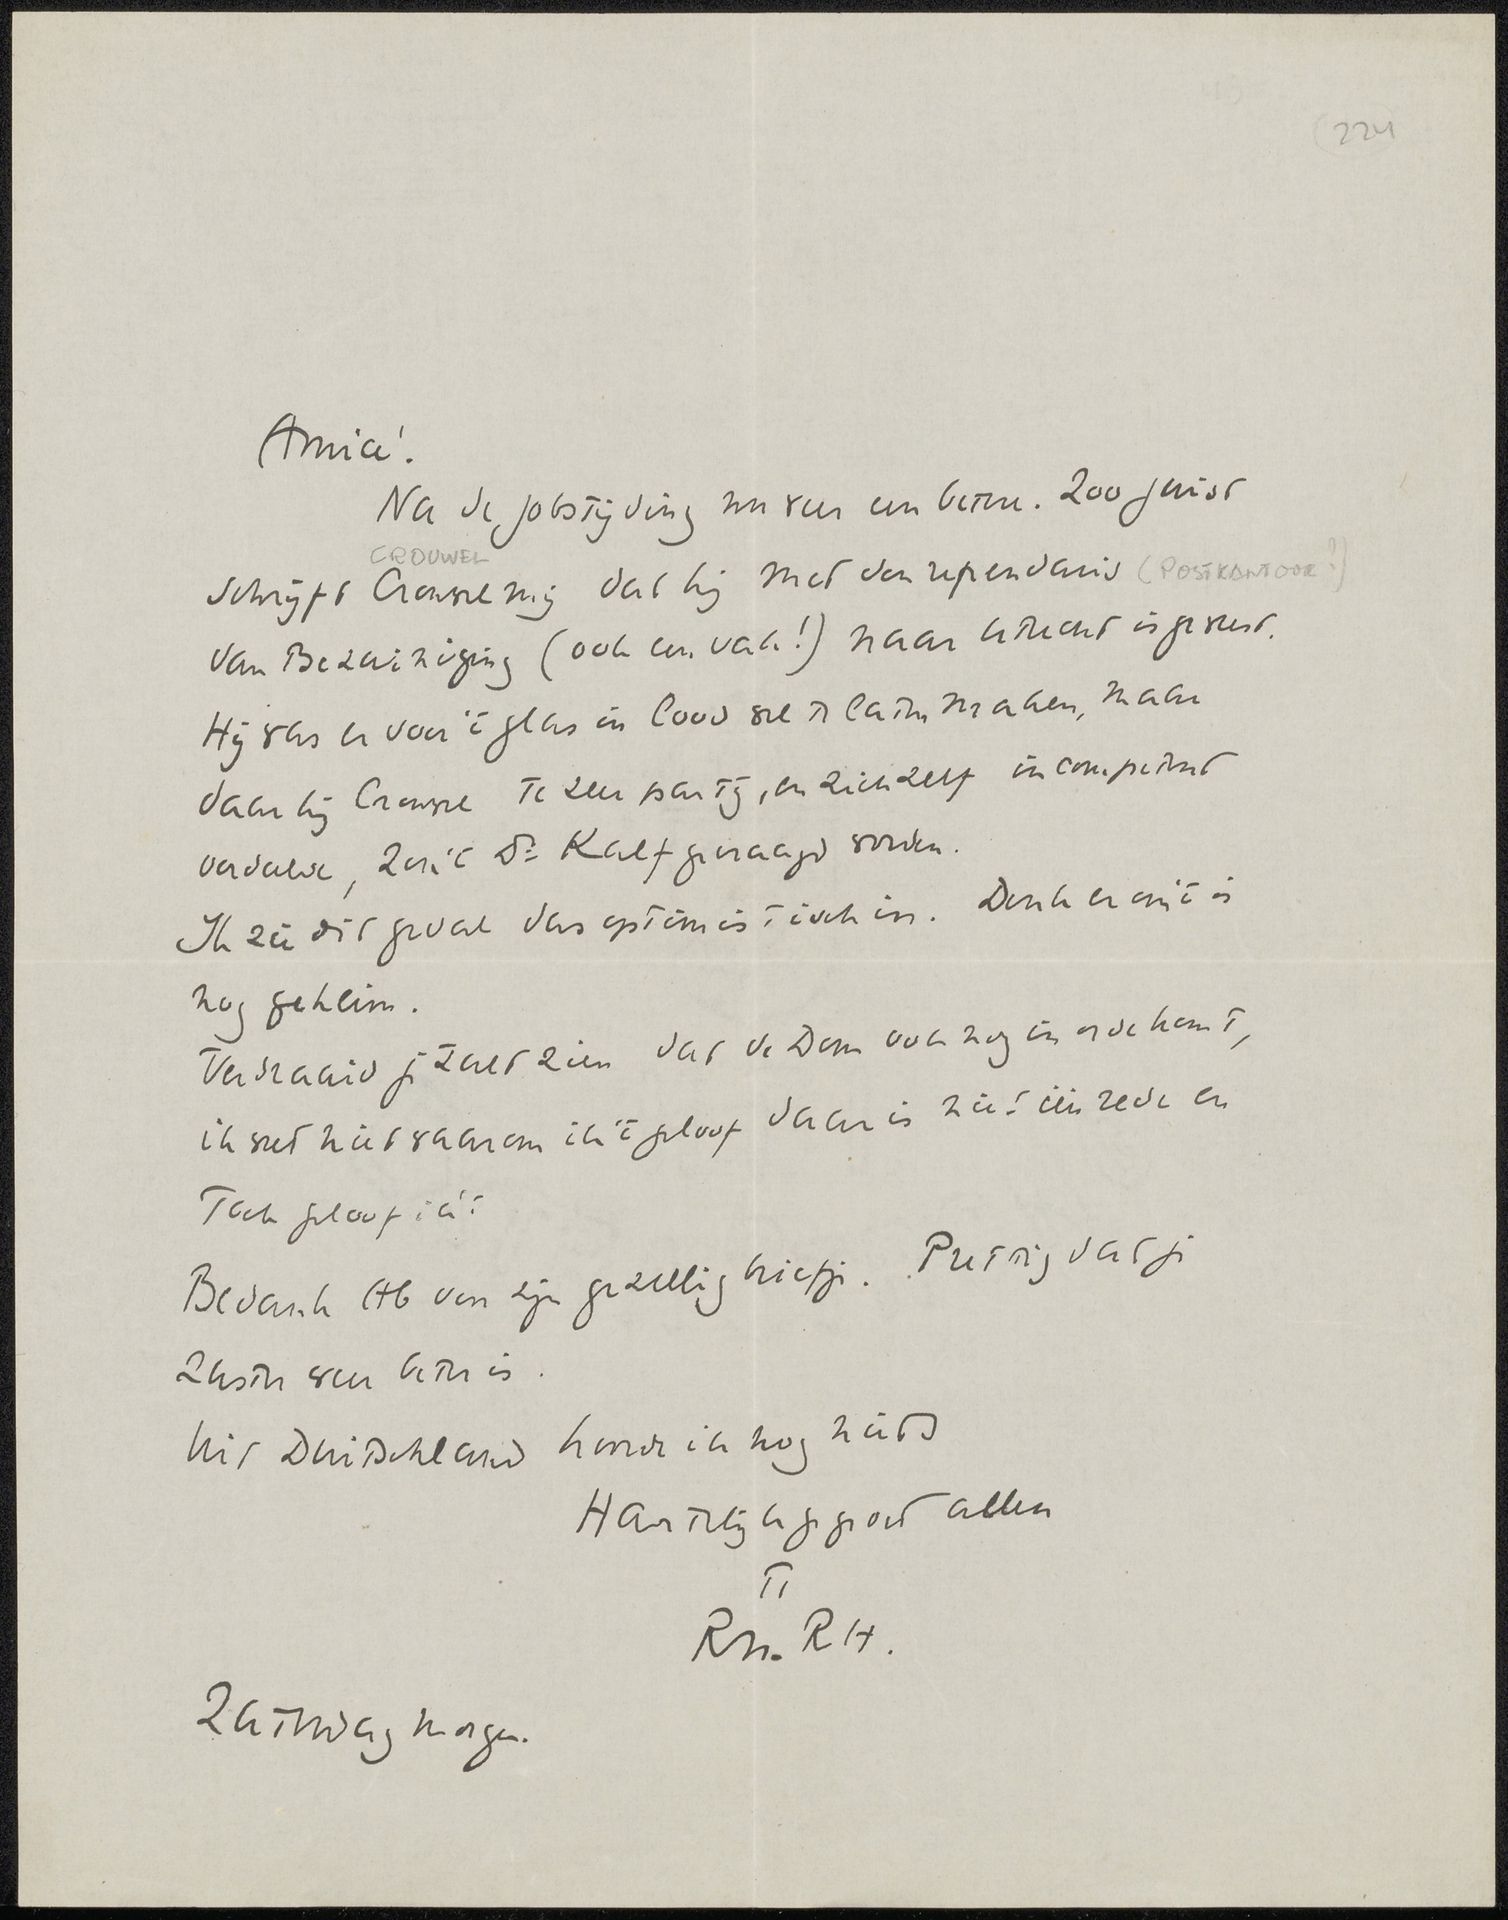 (224)
Amice!
Na de jobstijding nu weer een betere. Zoo juist
CROUWEL
schrijft Crouwel mij dat hij met den referendaris (POSTKANTOOR!)
van Bezuiniging (ook een vak!) naar Utrecht is geweest.
Hij was er voor 't glas in lood wel te laten maken, maar
daar hij Crouwel te zeer partij, en zichzelf incompetent
verdelde, zou 't Dr Kalf gevraagd worden.
Ik zie dit geval dus optimistisch in. Denk er om 't is
nog geheim.
Verdraaid je zult zien dat de Dom ook nog in orde komt,
ik weet niet waarom ik 't geloof daar is niet één rede en
Toch geloof ik 't
Bedank Ab voor zijn gezellig briefje. Prettig dat je
Zuster weer beter is.
Uit Duitschland hoorde ik nog niets
Hartelijk gegroet allen
tt
RN. RH.
Zaterdag morgen.